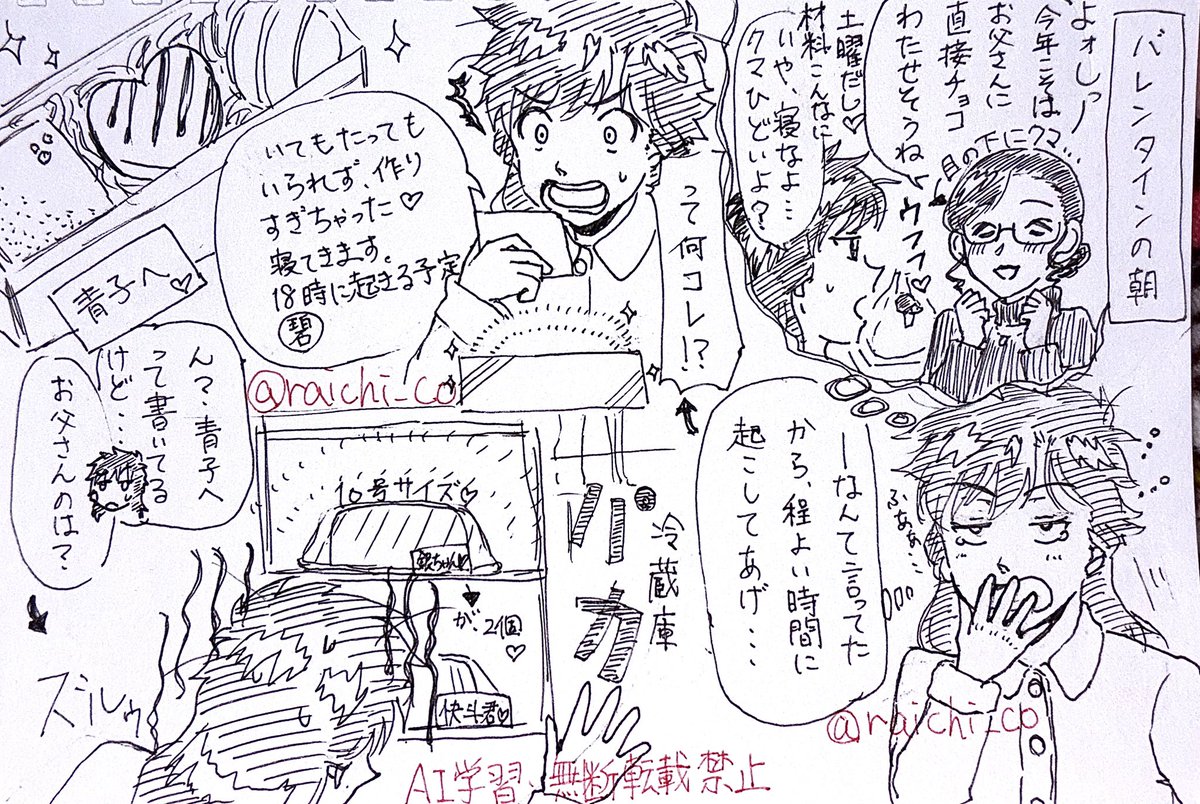 バレンタインの朝
よォしっ
今年こそは
お父さんに
直接チョコ
わたせそうね
目の下にクマ…
ウフフ♡
土曜だし♡
材料こんなに
いや、寝なよ…
クマひどいよ?
ーなんて言ってた
から、程よい時間に
起こしてあげ…
ふあぁ…
@raichi_co
って何コレ!?
いてもたっても
いられず、作り
すぎちゃった♡
寝てきます。
18時に起きる予定
碧
@raichi_co
青子へ♡
ん?青子へ
って書いてる
けど…
お父さんのは?
冷蔵庫
パカ
10号サイズ♡
銀ちゃん♡
が、2個
♡
快斗君♡
ズルゥ
AI学習、無断転載禁止